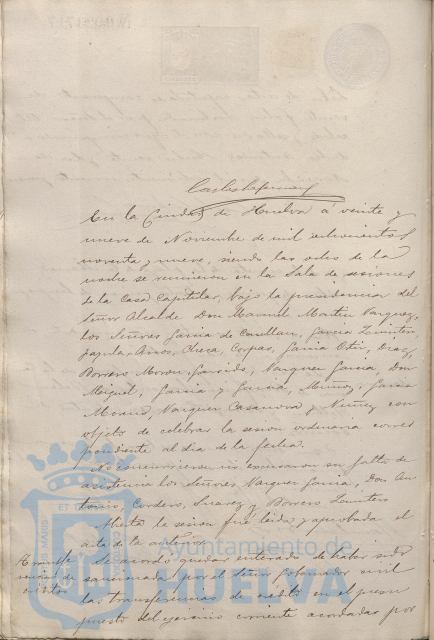 En la Ciudad de Huelva á veinte y
nueve de Noviembre de mil ochocientos
noventa y nueve, siendo las ocho de la
noche se reunieron en la Sala de sesiones
de la Casa Capitular, bajo la presidencia del
Señor Alcalde Don Manuel Martin Vazquez,
los Señores Garcia de Garcia
Checa, Corpas, Garcia Diaz,
Borrero Moron, Garrido, Vazquez Garcia, Don
Miguel, Garcia y Garcia, Muñoz, Garcia
Moreno, Vazquez Casanova y Nuñez con
objeto de celebrar la sesion ordinaria corres
pondiente al dia de la fecha.
No concurrieron ni escusaron su falta de
asistencia los Señores Vazquez Garcia, Don An
tonio, Cordero, Suarez y Borrero
Abierta la sesion fué leida y aprobada el
acta de la anterior.
Se acordó quedar enterado de haber sido
sancionada por el Señor Gobernador civil
las transferencias de crédito en el presu
puesto del egercicio corriente acordadas por
Ayuntamiento de
HUELVA